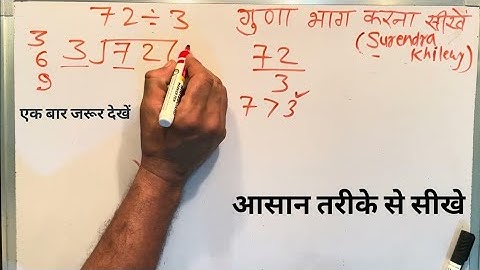 72÷3
गुणा भाग करना सीखें
(Surendra
Khilery)
3
6
9
3)72(
72
3
7>3✓
एक बार जरूर देखें
आसान तरीके से सीखे